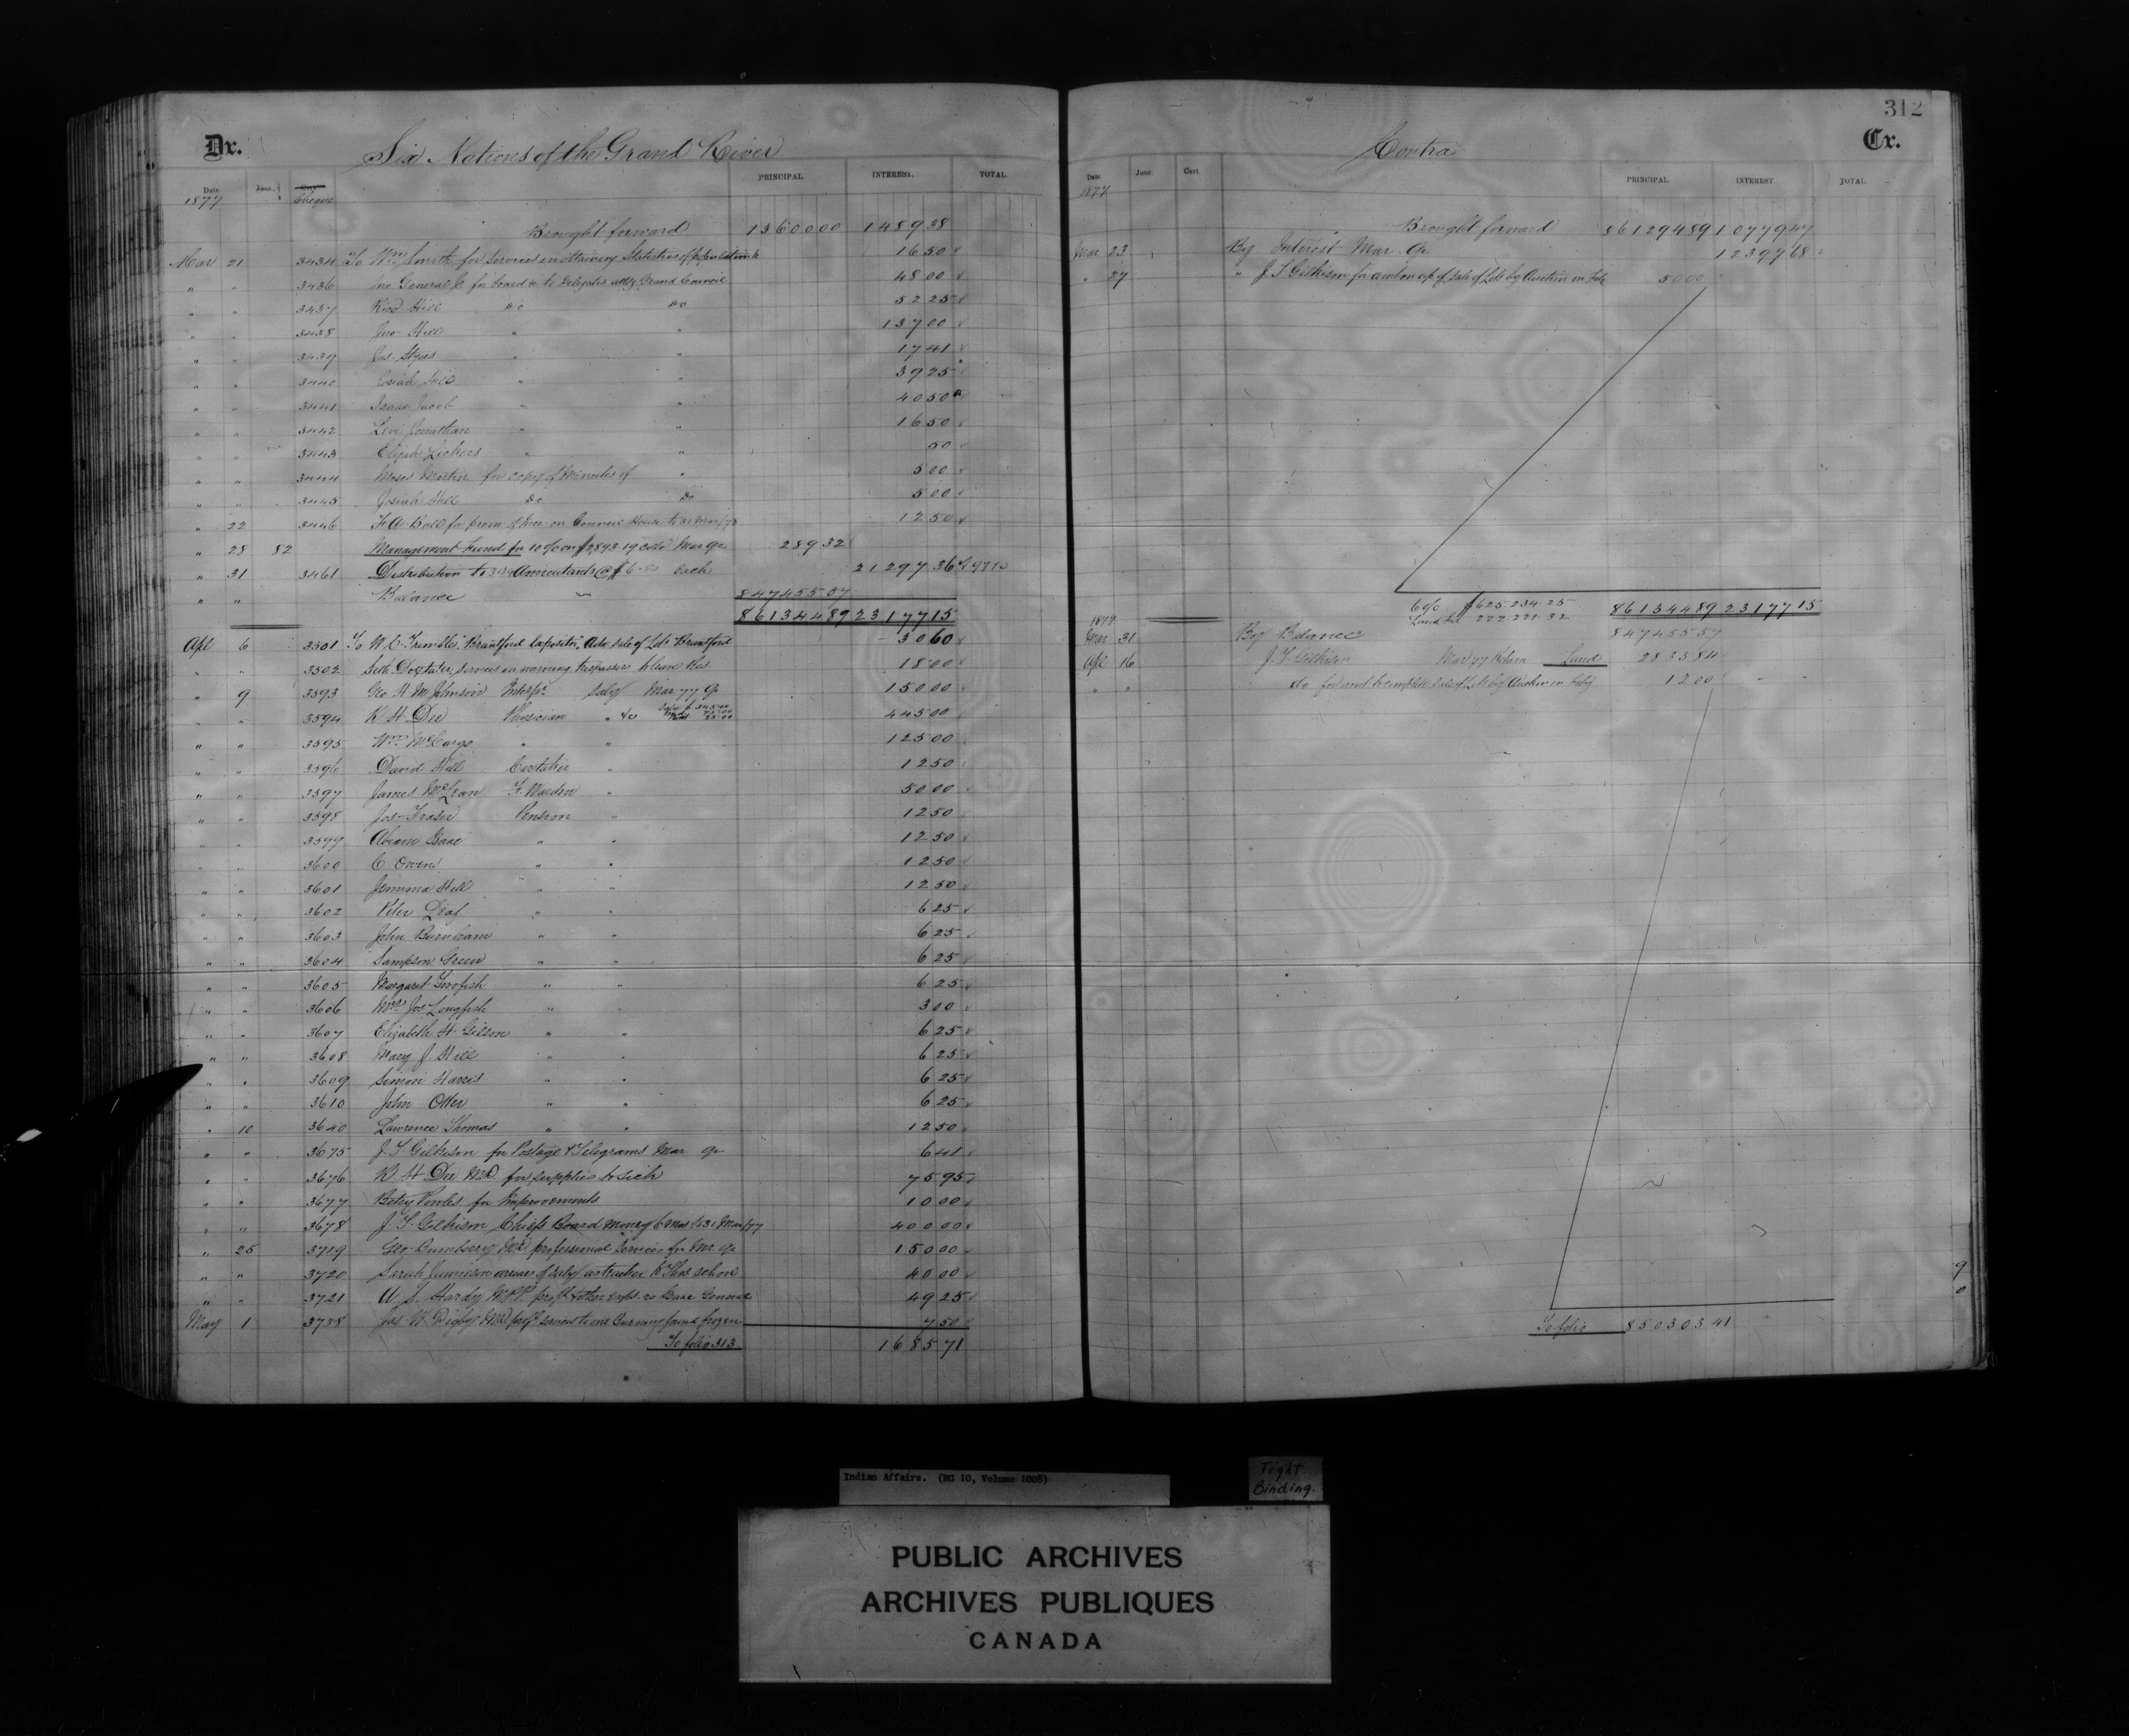 312
Dr. Six Nations of the Grand River
Date Jour. Cheque PRINCIPAL. INTEREST. TOTAL.
1877
Brought forward 13600 00 1489 38
Mar 21 3434 To Wm Smith for services in obtaining Statistics of population &c 16 50
" " 3436 Jno General Jr for board &c to Delegates attdg Grand Council 48 00
" " 3437 Richd Hill Do Do 52 25
" " 3438 Jno Hill " " 137 00
" " 3439 Jas Styres " " 17 41
" " 3440 Josiah Hill " " 39 25
" " 3441 Isaac Jacob " " 40 50
" " 3442 Levi Jonathan " " 16 50
" " 3443 Elijah Lickers " " 50
" " 3444 Moses Martin for copy of Minutes of " 5 00
" " 3445 Josiah Hill Do Do 5 00
" 22 3446 F. A. Ball for prem of Insce on Council House to 31 Mar/78 12 50
" 28 82 Management Fund for 10% on $2893.19 Colld Mar Qr 289 32
" 31 3461 Distribution to Annuitants @ $6. each 21297 36
" " Balance 847455 57
861344 89 23177 15
Apl 6 3501 To W. C. Trimble, "Brantford Expositor," Adv. sale of Lots Brantford 30 60
" " 3502 Seth Doxtater, services in warning trespassers to leave Res. 18 00
" 9 3593 Geo H M Johnson Interpr Saly Mar 77 Qr 150 00
" " 3594 R H Dee Physician " &c 445 00
" " 3595 Wm McCargo " " 125 00
" " 3596 David Hill Caretaker " 12 50
" " 3597 James McLean F. Warden " 50 00
" " 3598 Jos Fraser Pension " 12 50
" " 3599 Abram Isaac " " 12 50
" " 3600 C Owens " " 12 50
" " 3601 Jemima Hill " " 12 50
" " 3602 Peter Leaf " " 6 25
" " 3603 John Burnham " " 6 25
" " 3604 Sampson Green " " 6 25
" " 3605 Margaret " " 6 25
" " 3606 Mrs Jos Longfish " " 3 00
" " 3607 Elizabeth H Gilson " " 6 25
" " 3608 Mary J. Hill " " 6 25
" " 3609 Simon Harris " " 6 25
" " 3610 John Otter " " 6 25
" 10 3640 Lawrence Thomas " " 12 50
" " 3675 J. T. Gilkison for Postage & Telegrams Mar Qr 6 41
" " 3676 R. H Dee MD for supplies to sick 75 95
" " 3677 Betsy Powles for Improvements 10 00
" " 3678 J. T. Gilkison Chiefs Board money 6 mos to 31 Mar/77 400 00
" 25 3719 Geo Bumberry MD professional services for Mr Qr 150 00
" " 3720 Sarah Jamieson arrears of saly as teacher school 40 00
" " 3721 A. S. Hardy M.P.P. 49 25
May 1 3738 Jas W Digby MD profl services to one Burning found frozen 7 50
To folio 313 1685 71
Contra Cr.
Date Jour. Cert. PRINCIPAL. INTEREST. TOTAL.
1877
Brought forward 861294 89 10779 47
Mar 23 By Interest Mar Qr 12397 68
" 27 " J. T. Gilkison for amt on a/c of sale of Lots by Auction in Feby 50 00
6% $625.234.25 861344 89 23177 15
1877
Mar 31 By Balance 847455 57
Apl 16 J. T. Gilkison Mar 77 Return Land 2835 84
" " do for amt to complete sale of Lots by Auction in Feby 12 00
To folio 850303 41
Indian Affairs. (RG 10, Volume 1008)
Tight
Binding.
PUBLIC ARCHIVES
ARCHIVES PUBLIQUES
CANADA